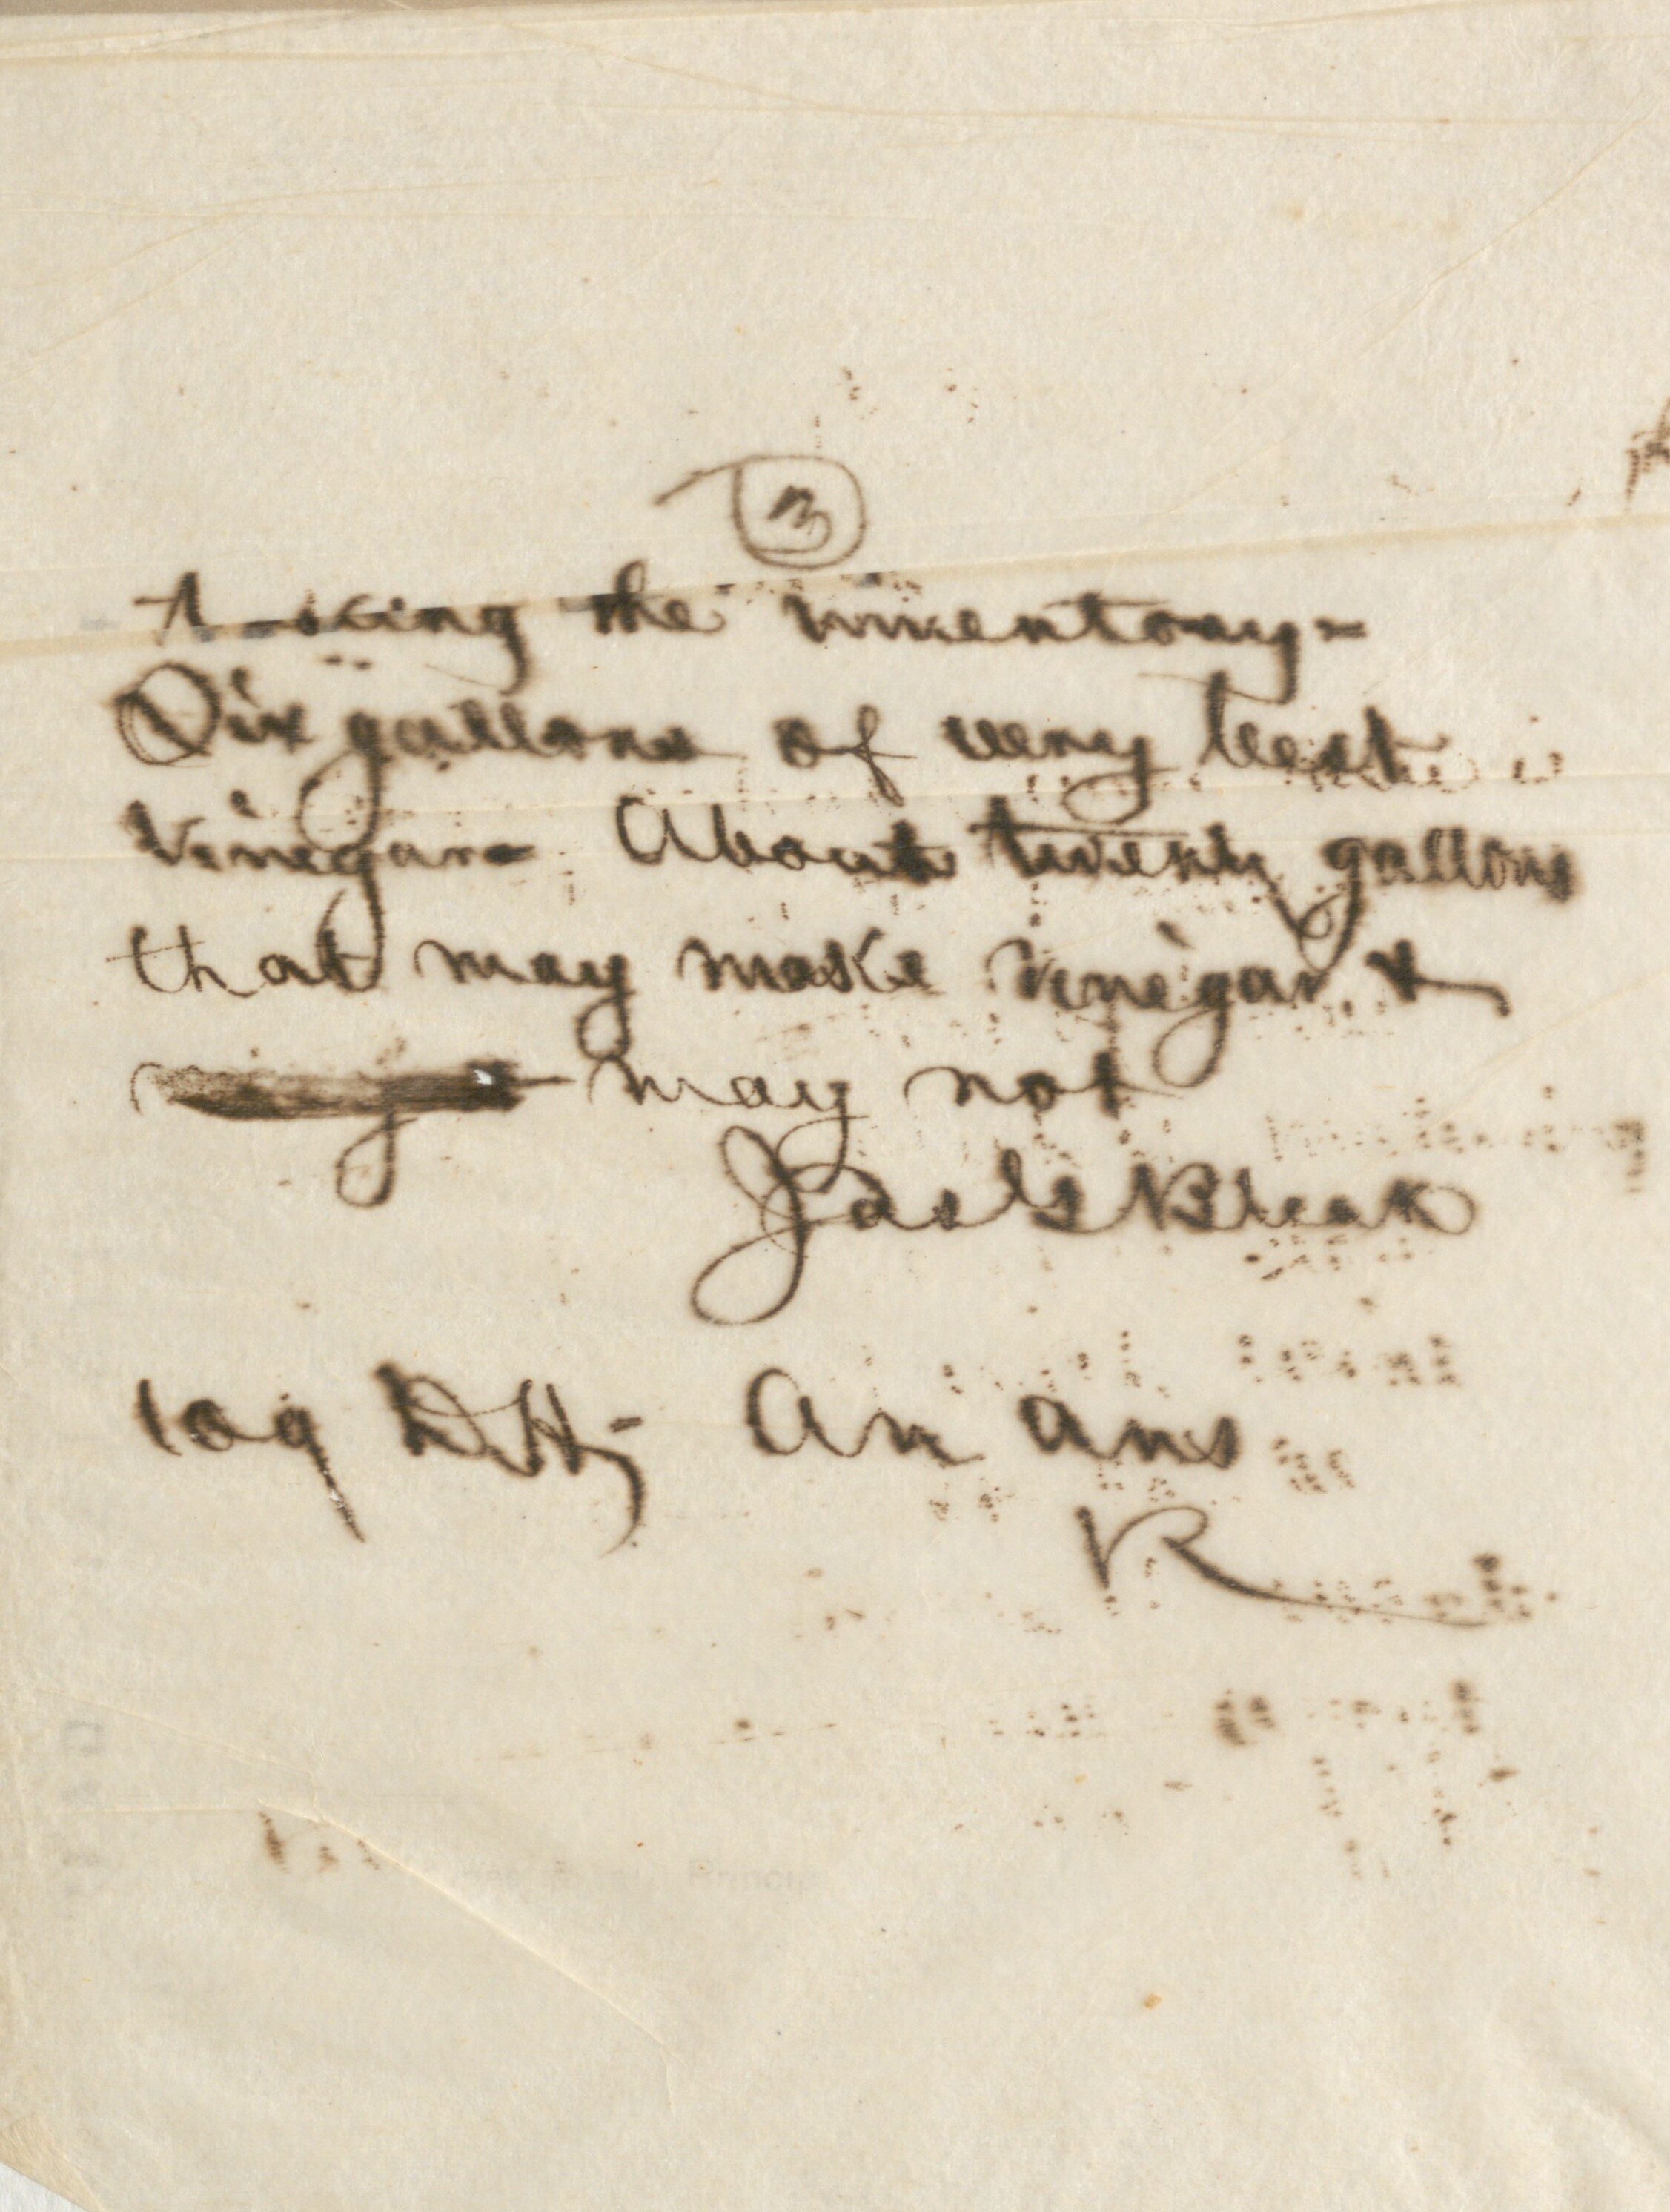 3
taking the inventory-
Six gallons of very best
vinegar- About twenty gallons
that may make vinegar &
may not
Jas G Bleak
109 DH- An Ans
R